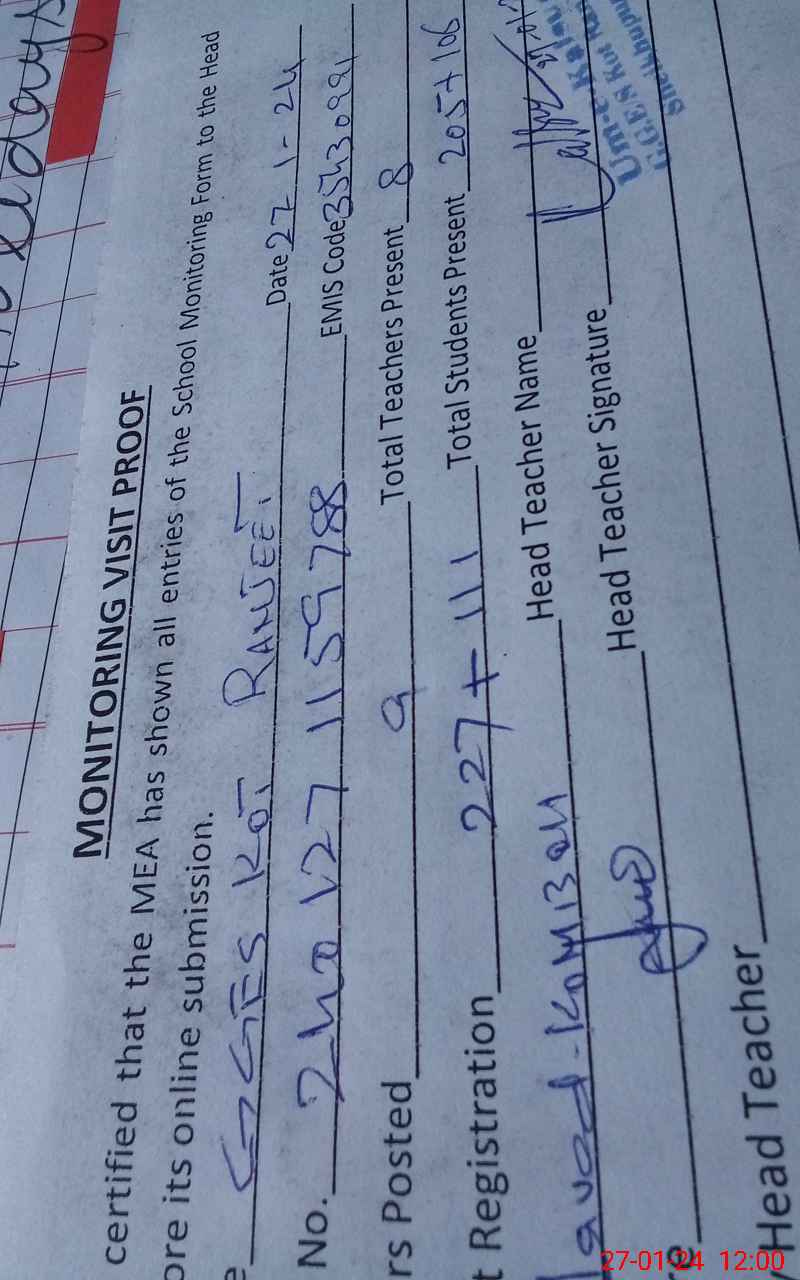 days
MONITORING VISIT PROOF
certified that the MEA has shown all entries of the School Monitoring Form to the Head
ore its online submission.
e GGES KOT RANJEET. Date 27-1-24
No. 2401271159788 EMIS Code 35430991
rs Posted 9 Total Teachers Present 8
t Registration 227+111 Total Students Present 205+106
Head Teacher Name
e Head Teacher Signature
/Head Teacher
27-01-24 12:00